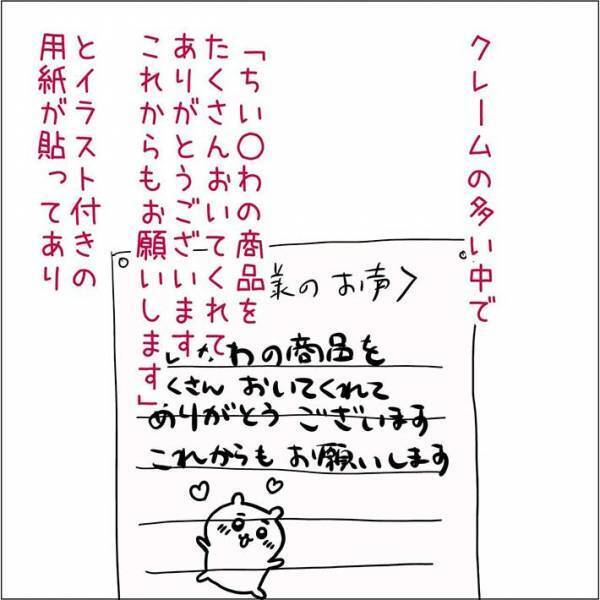 クレームの多い中で
「ちい〇わの商品を
たくさんおいてくれて
ありがとうございます
これからもお願いします」
とイラスト付きの
用紙が貼ってあり
様のお声〉
いかわの商品を
くさん おいてくれて
ありがとう ございます
これからも お願いします